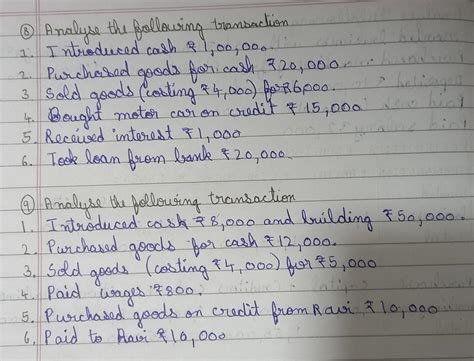 ⑧ Analyse the following transaction
1. Introduced cash ₹1,00,000.
2. Purchased goods for cash ₹20,000.
3. Sold goods (costing ₹4,000) for ₹6,000.
4. Bought motor car on credit ₹15,000
5. Received interest ₹1,000
6. Took loan from bank ₹20,000.
⑨ Analyse the following transaction
1. Introduced cash ₹8,000 and building ₹50,000.
2. Purchased goods for cash ₹12,000.
3. Sold goods (costing ₹4,000) for ₹5,000
4. Paid wages ₹800.
5. Purchased goods on credit from Ravi ₹10,000
6. Paid to Ravi ₹10,000